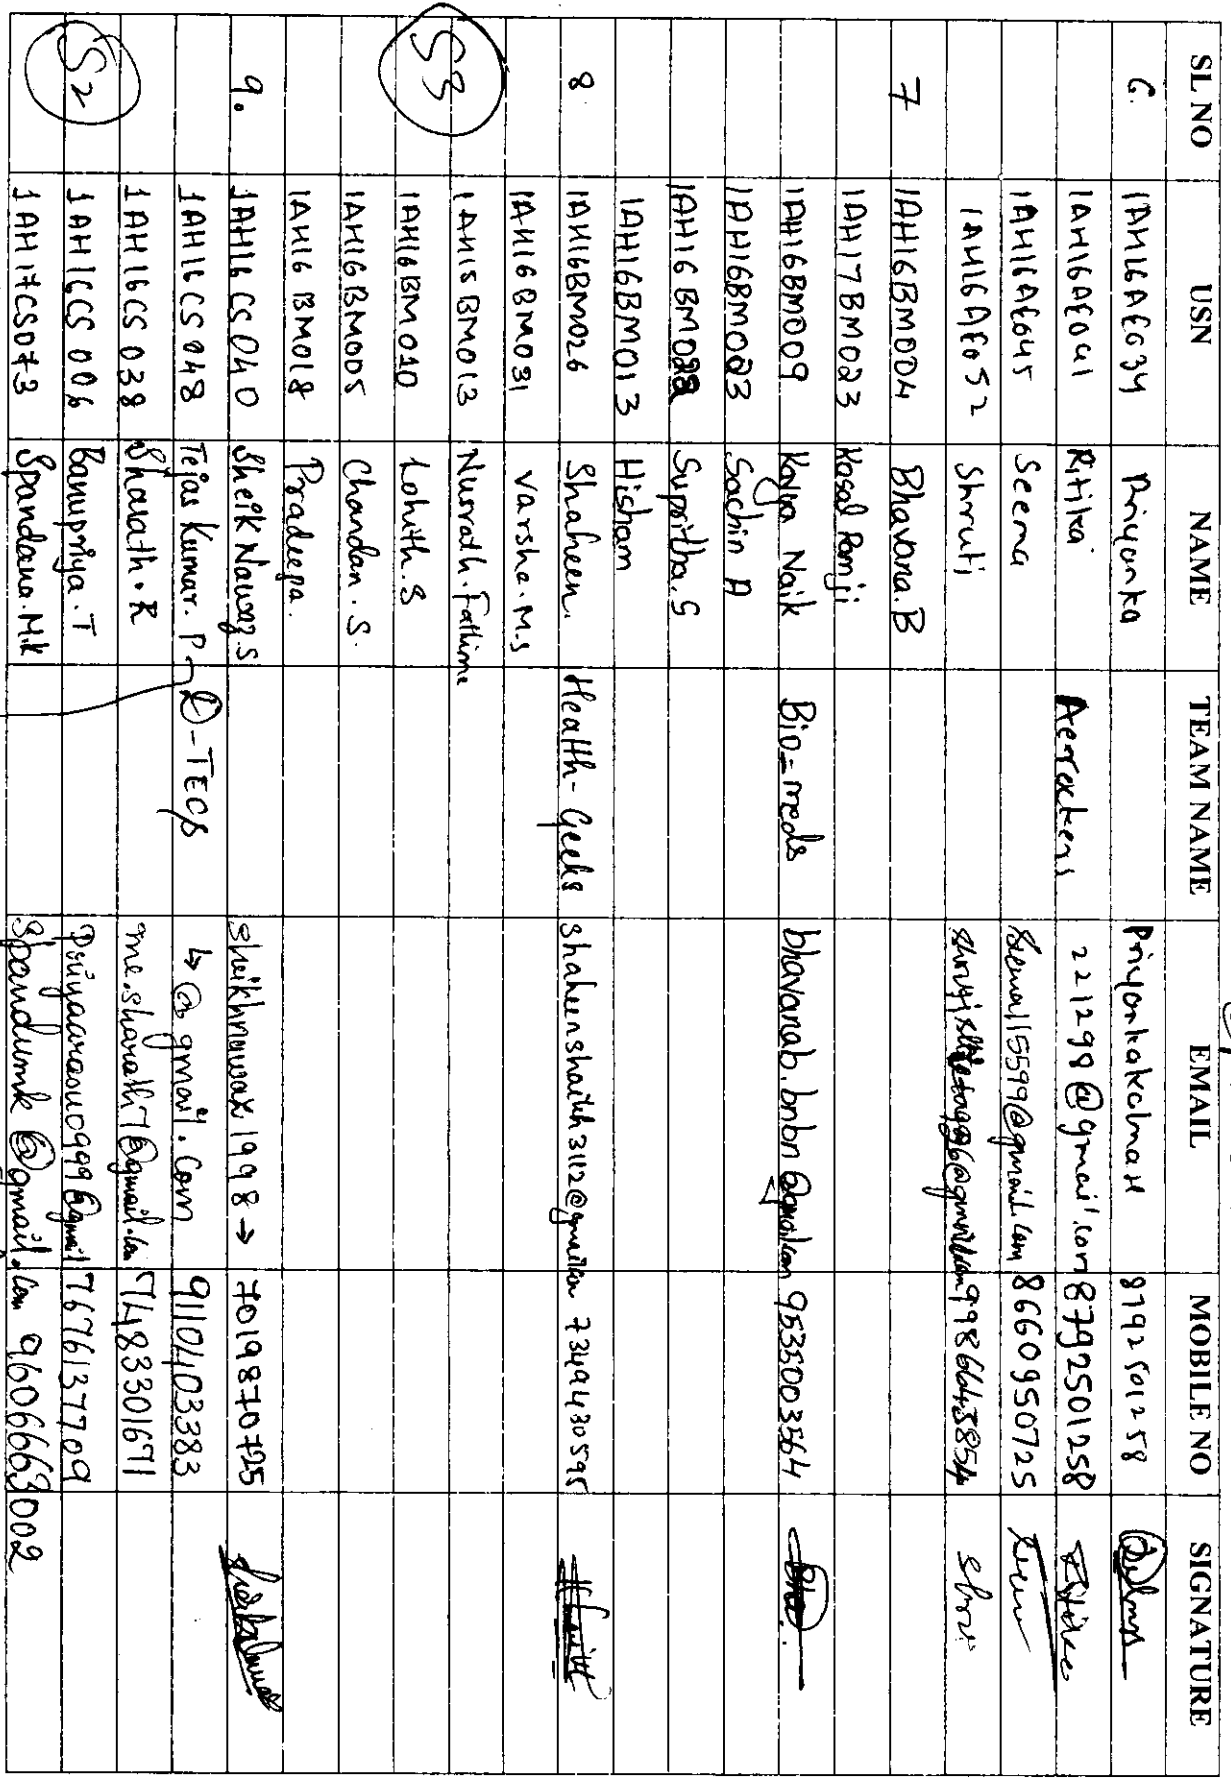 SL NO USN NAME TEAM NAME EMAIL MOBILE NO SIGNATURE
6. 1AH16AE034 Priyanka 8792501258
1AH16AE041 Ritika 221298@gmail.com 8792501258
1AH16AE045 Seema 8660950725
1AH16AE052 Shruti
7 1AH16BM004 Bhavana.B
1AH17BM023
1AH16BM009 Kavya Naik Bio-meds bhavanab.bnbn@gmail.com 9535003564
1AH16BM023 Sachin A
Supritha.S
1AH16BM013 Hisham
8 1AH16BM026 Shaheen. Health-Geeks shaheenshaikh3112@gmail.com
1AH16BM031 Varsha.M.S
1AH15BM013 Nusrath.Fathima
S3 1AH16BM010 Lohith.S
1AH16BM005 Chandan.S.
1AH16BM018 Pradeepa.
9. 1AH16CS040 Sheik Nawaz.S 7019870725
1AH16CS048 Tejas Kumar.P -TECS ↳ @gmail.com 9110403383
1AH16CS038 Sharath.R me.sharath7@gmail.com 7483301671
S2 1AH16CS006 Banupriya.T 7676137709
1AH17CS073 Spandana.M.k spandumk@gmail.com 9606663002